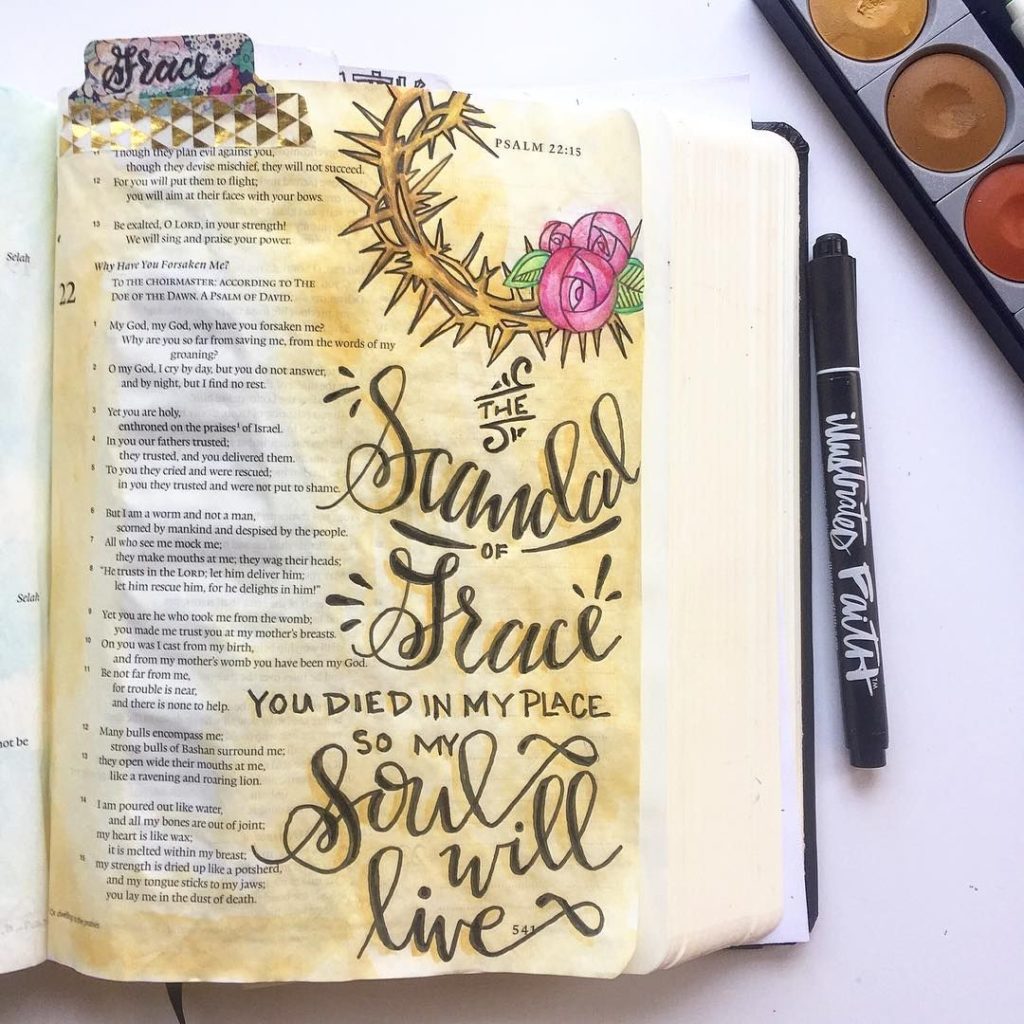 Grace
PSALM 22:15
11 Though they plan evil against you,
though they devise mischief, they will not succeed.
12 For you will put them to flight;
you will aim at their faces with your bows.
13 Be exalted, O LORD, in your strength!
We will sing and praise your power.
Why Have You Forsaken Me?
22 TO THE CHOIRMASTER: ACCORDING TO THE
DOE OF THE DAWN. A PSALM OF DAVID.
1 My God, my God, why have you forsaken me?
Why are you so far from saving me, from the words of my
groaning?
2 O my God, I cry by day, but you do not answer,
and by night, but I find no rest.
3 Yet you are holy,
enthroned on the praises¹ of Israel.
4 In you our fathers trusted;
they trusted, and you delivered them.
5 To you they cried and were rescued;
in you they trusted and were not put to shame.
6 But I am a worm and not a man,
scorned by mankind and despised by the people.
7 All who see me mock me;
they make mouths at me; they wag their heads;
8 "He trusts in the LORD; let him deliver him;
let him rescue him, for he delights in him!"
9 Yet you are he who took me from the womb;
you made me trust you at my mother's breasts.
10 On you was I cast from my birth,
and from my mother's womb you have been my God.
11 Be not far from me,
for trouble is near,
and there is none to help.
12 Many bulls encompass me;
strong bulls of Bashan surround me;
13 they open wide their mouths at me,
like a ravening and roaring lion.
14 I am poured out like water,
and all my bones are out of joint;
my heart is like wax;
it is melted within my breast;
15 my strength is dried up like a potsherd,
and my tongue sticks to my jaws;
you lay me in the dust of death.
THE
Scandal
OF
Grace
YOU DIED IN MY PLACE
SO MY
Soul
will
live
541
Selah
Selah
not be
illustrated Faith™